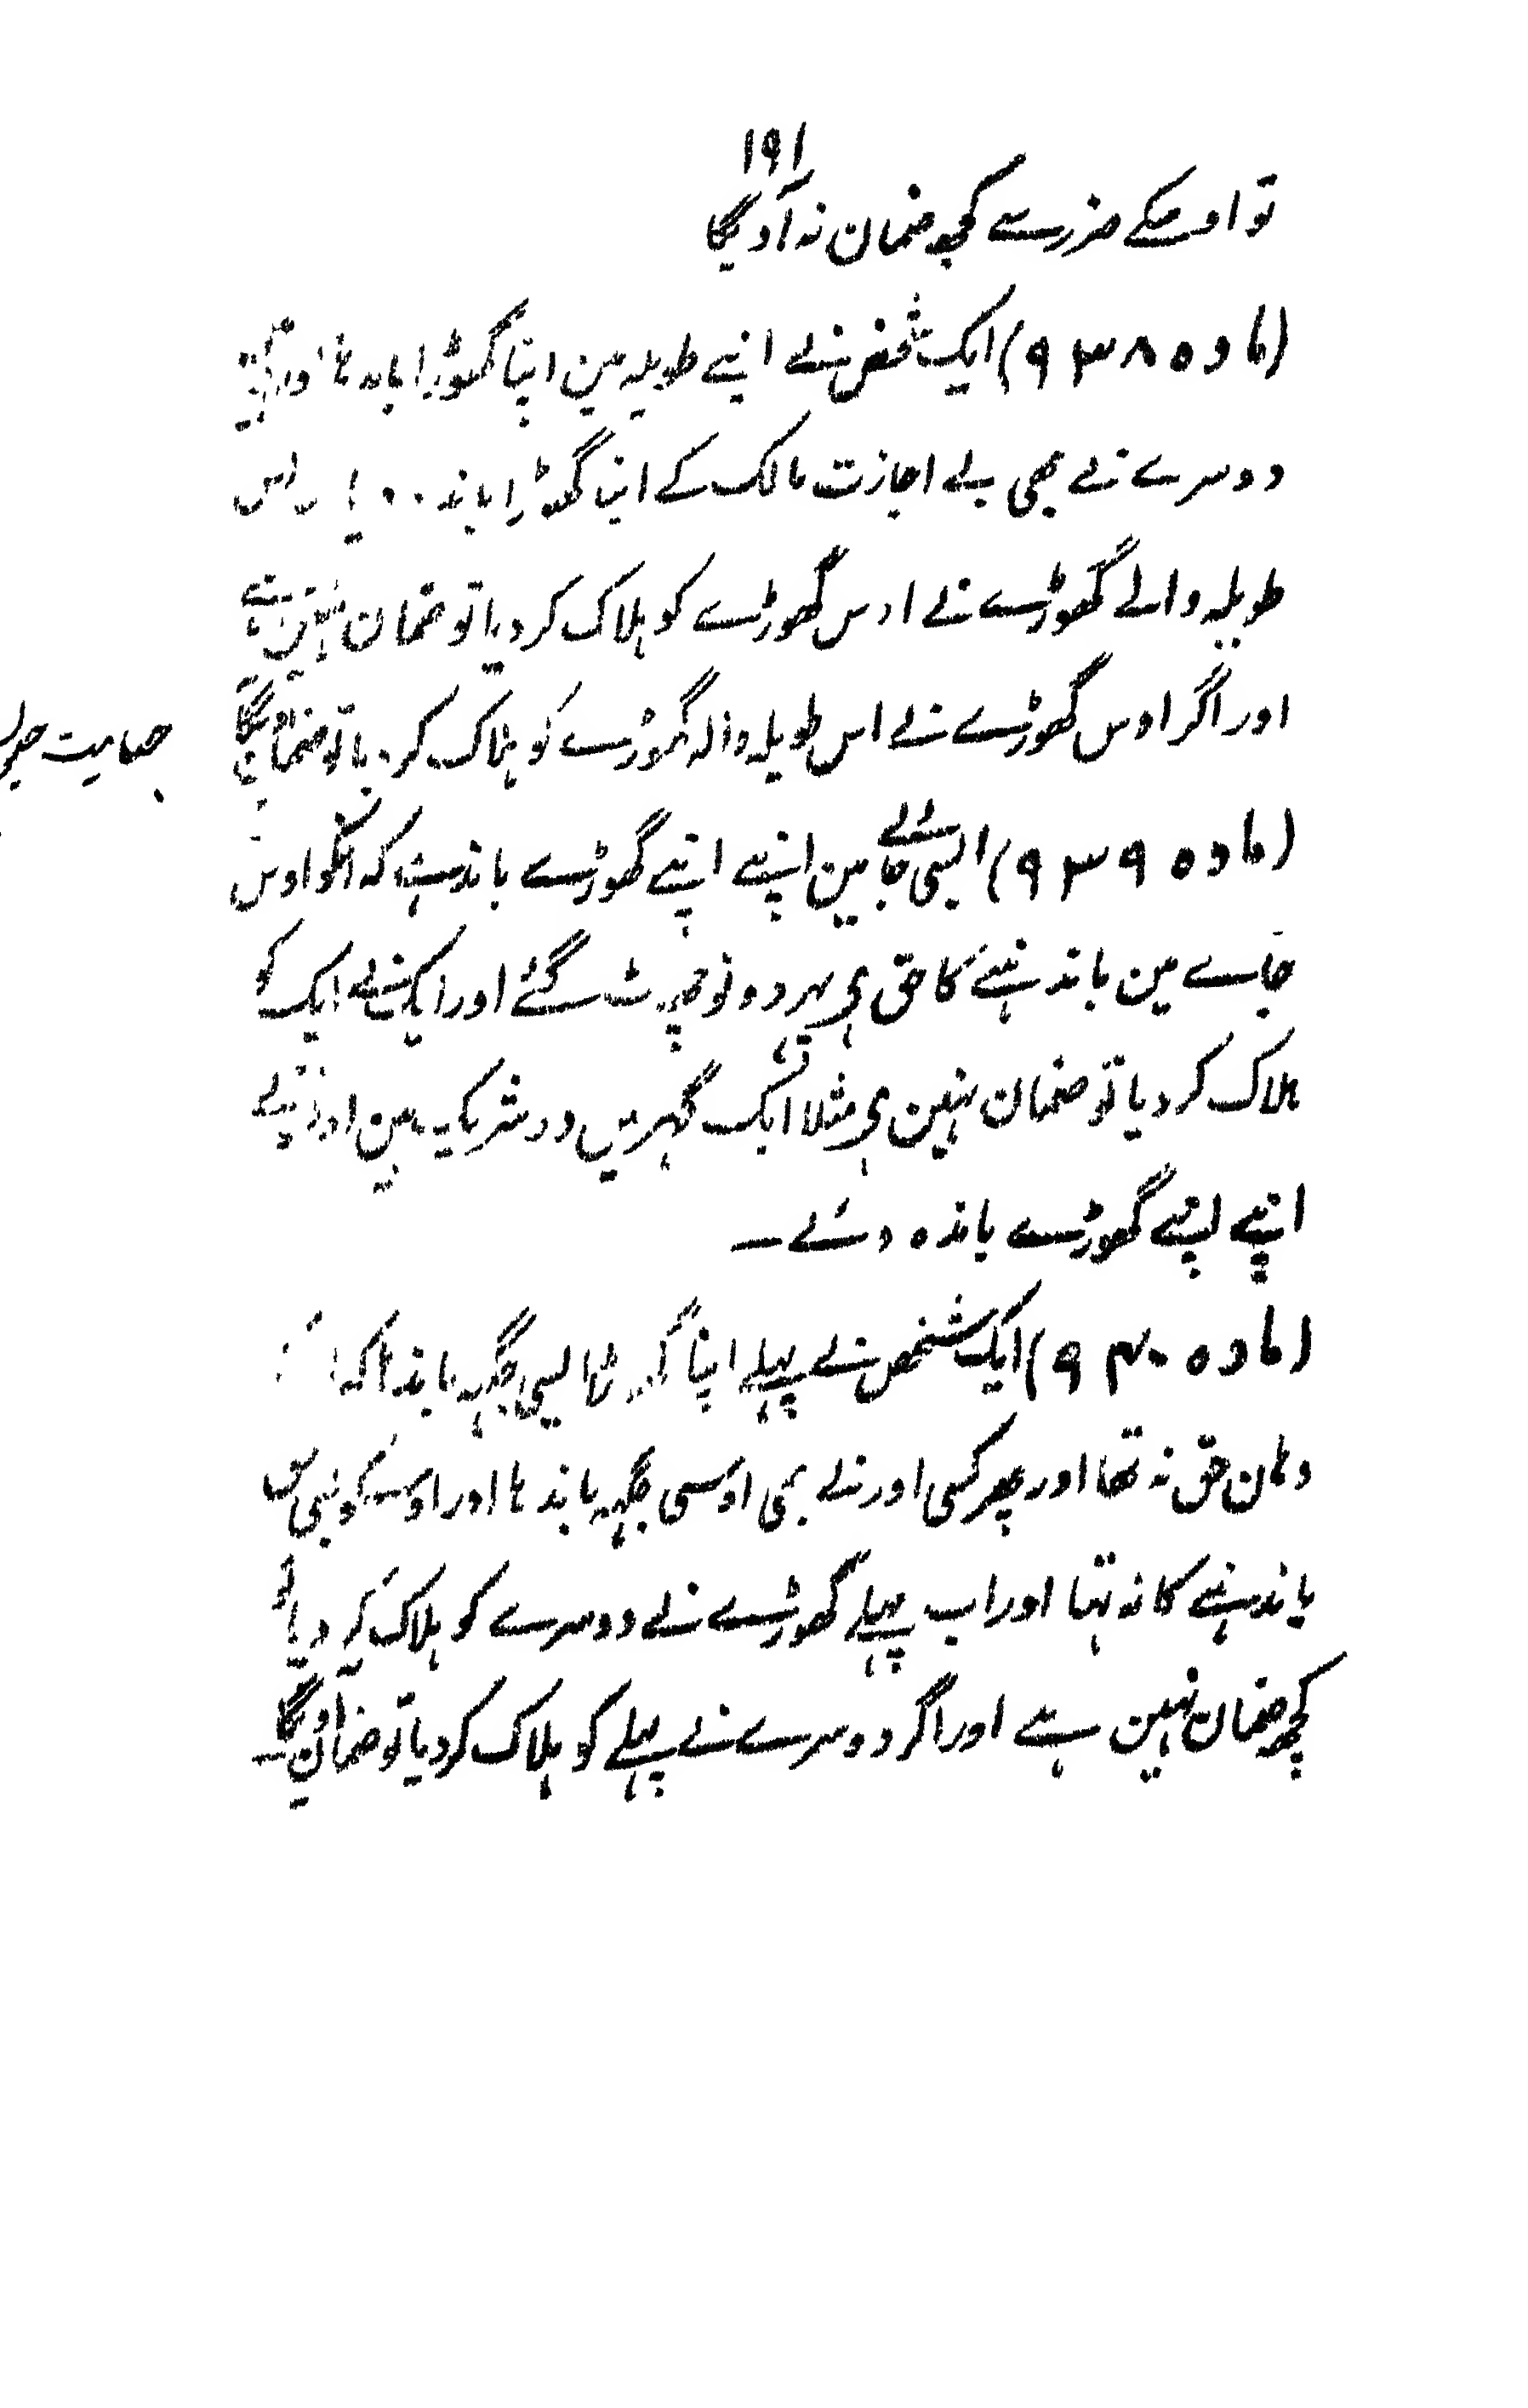 ۱۹۱
تو اوسکے ضرر سے کچھ ضمان نہ آویگا
(مادہ ۹۳۸) ایک شخص نے اپنے طویلہ مین اپنا گھوڑا باندھا
دوسرے نے بھی بے اجازت مالک کے اپنا گھوڑا اس
طویلہ والے گھوڑے نے اوس گھوڑے کو ہلاک کر دیا تو ضمان نہین ہے
اور اگر اوس گھوڑے نے اس طویلہ والہ گھوڑے کو ہلاک کر دیا تو ضمان
(مادہ ۹۳۹) ایسی جائے مین اپنے اپنے گھوڑے باندہے کہ انکو اوس
جاے مین باندہنے کا حق ہی پہر دونو چہٹ گئے اور ایک نے ایک کو
ہلاک کر دیا تو ضمان نہین ہی مثلا ایک گہر میں دو شریک ہین
اپنے اپنے گھوڑے باندہ دئے ــ
(مادہ ۹۴۰) ایک شخص نے پہلے اپنا ایسی جگہہ باندہا کہ
وہان حق نہ تھا اور پھر کسی اور نے بہی اوسی جگہہ باندہا اور اوسکو بہی
باندہنے کا نہ تہا اور اب پہلے گھوڑے نے دوسرے کو ہلاک کر دیا تو
کچھ ضمان نہین ہے اور اگر دوسرے نے پہلے کو ہلاک کر دیا تو ضمان آویگا ــ